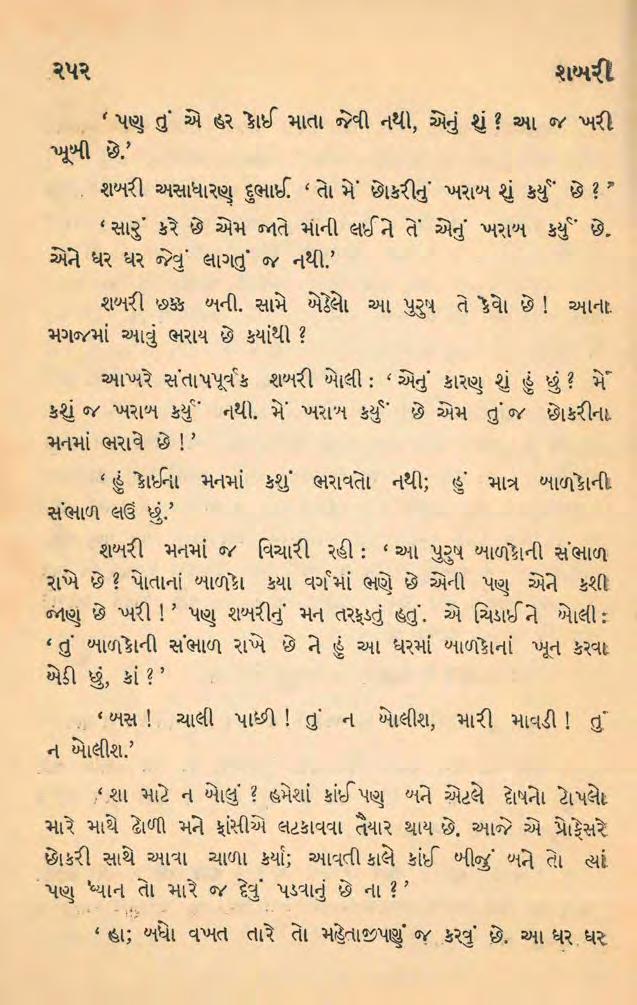 ૨૫૨ શબરી
‘ પણ તું એ હર કોઈ માતા જેવી નથી, એનું શું ? આ જ ખરી
ખૂબી છે.’
શબરી અસાધારણ દુભાઈ. ‘ તો મેં છોકરીનું ખરાબ શું કર્યું છે ? ’
‘ સારું કરે છે એમ જાતે માની લઈને તેં એનું ખરાબ કર્યું છે.
એને ઘર ઘર જેવું લાગતું જ નથી.’
શબરી છક્ક બની. સામે બેઠેલો આ પુરુષ તે કેવો છે ! આના
મગજમાં આવું ભરાય છે કયાંથી ?
આખરે સંતાપપૂર્વક શબરી બોલી : ‘ એનું કારણ શું હું છું ? મેં
કશું જ ખરાબ કર્યું નથી. મેં ખરાબ કર્યું છે એમ તું જ છોકરીના
મનમાં ભરાવે છે ! ’
‘ હું કોઈના મનમાં કશું ભરાવતો નથી; હું માત્ર બાળકોની
સંભાળ લઉં છું.’
શબરી મનમાં જ વિચારી રહી : ‘ આ પુરુષ બાળકોની સંભાળ
રાખે છે ? પોતાનાં બાળકો કયા વર્ગમાં ભણે છે એની પણ એને કશી
જાણ છે ખરી ! ’ પણ શબરીનું મન તરફડતું હતું. એ ચિડાઈને બોલી :
‘ તું બાળકોની સંભાળ રાખે છે ને હું આ ઘરમાં બાળકોનાં ખૂન કરવા
બેઠી છું, કાં ? ’
‘ બસ ! ચાલી પાછી ! તું ન બોલીશ, મારી માવડી ! તું
ન બોલીશ.’
‘ શા માટે ન બોલું ? હમેશાં કાંઈ પણ બને એટલે દોષનો ટોપલો
મારે માથે ઢોળી મને ફાંસીએ લટકાવવા તૈયાર થાય છે. આજે એ પ્રોફેસરે
છોકરી સાથે આવા ચાળા કર્યા; આવતી કાલે કાંઈ બીજું બને તો ત્યાં
પણ ધ્યાન તો મારે જ દેવું પડવાનું છે ના ? ’
‘ હા; બધો વખત તારે તો મહેતાજીપણું જ કરવું છે. આ ઘર ઘર